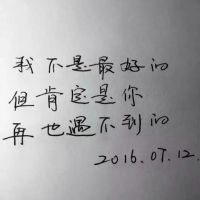 我不是最好的
但肯定是你
再也遇不到的
2016.07.12.